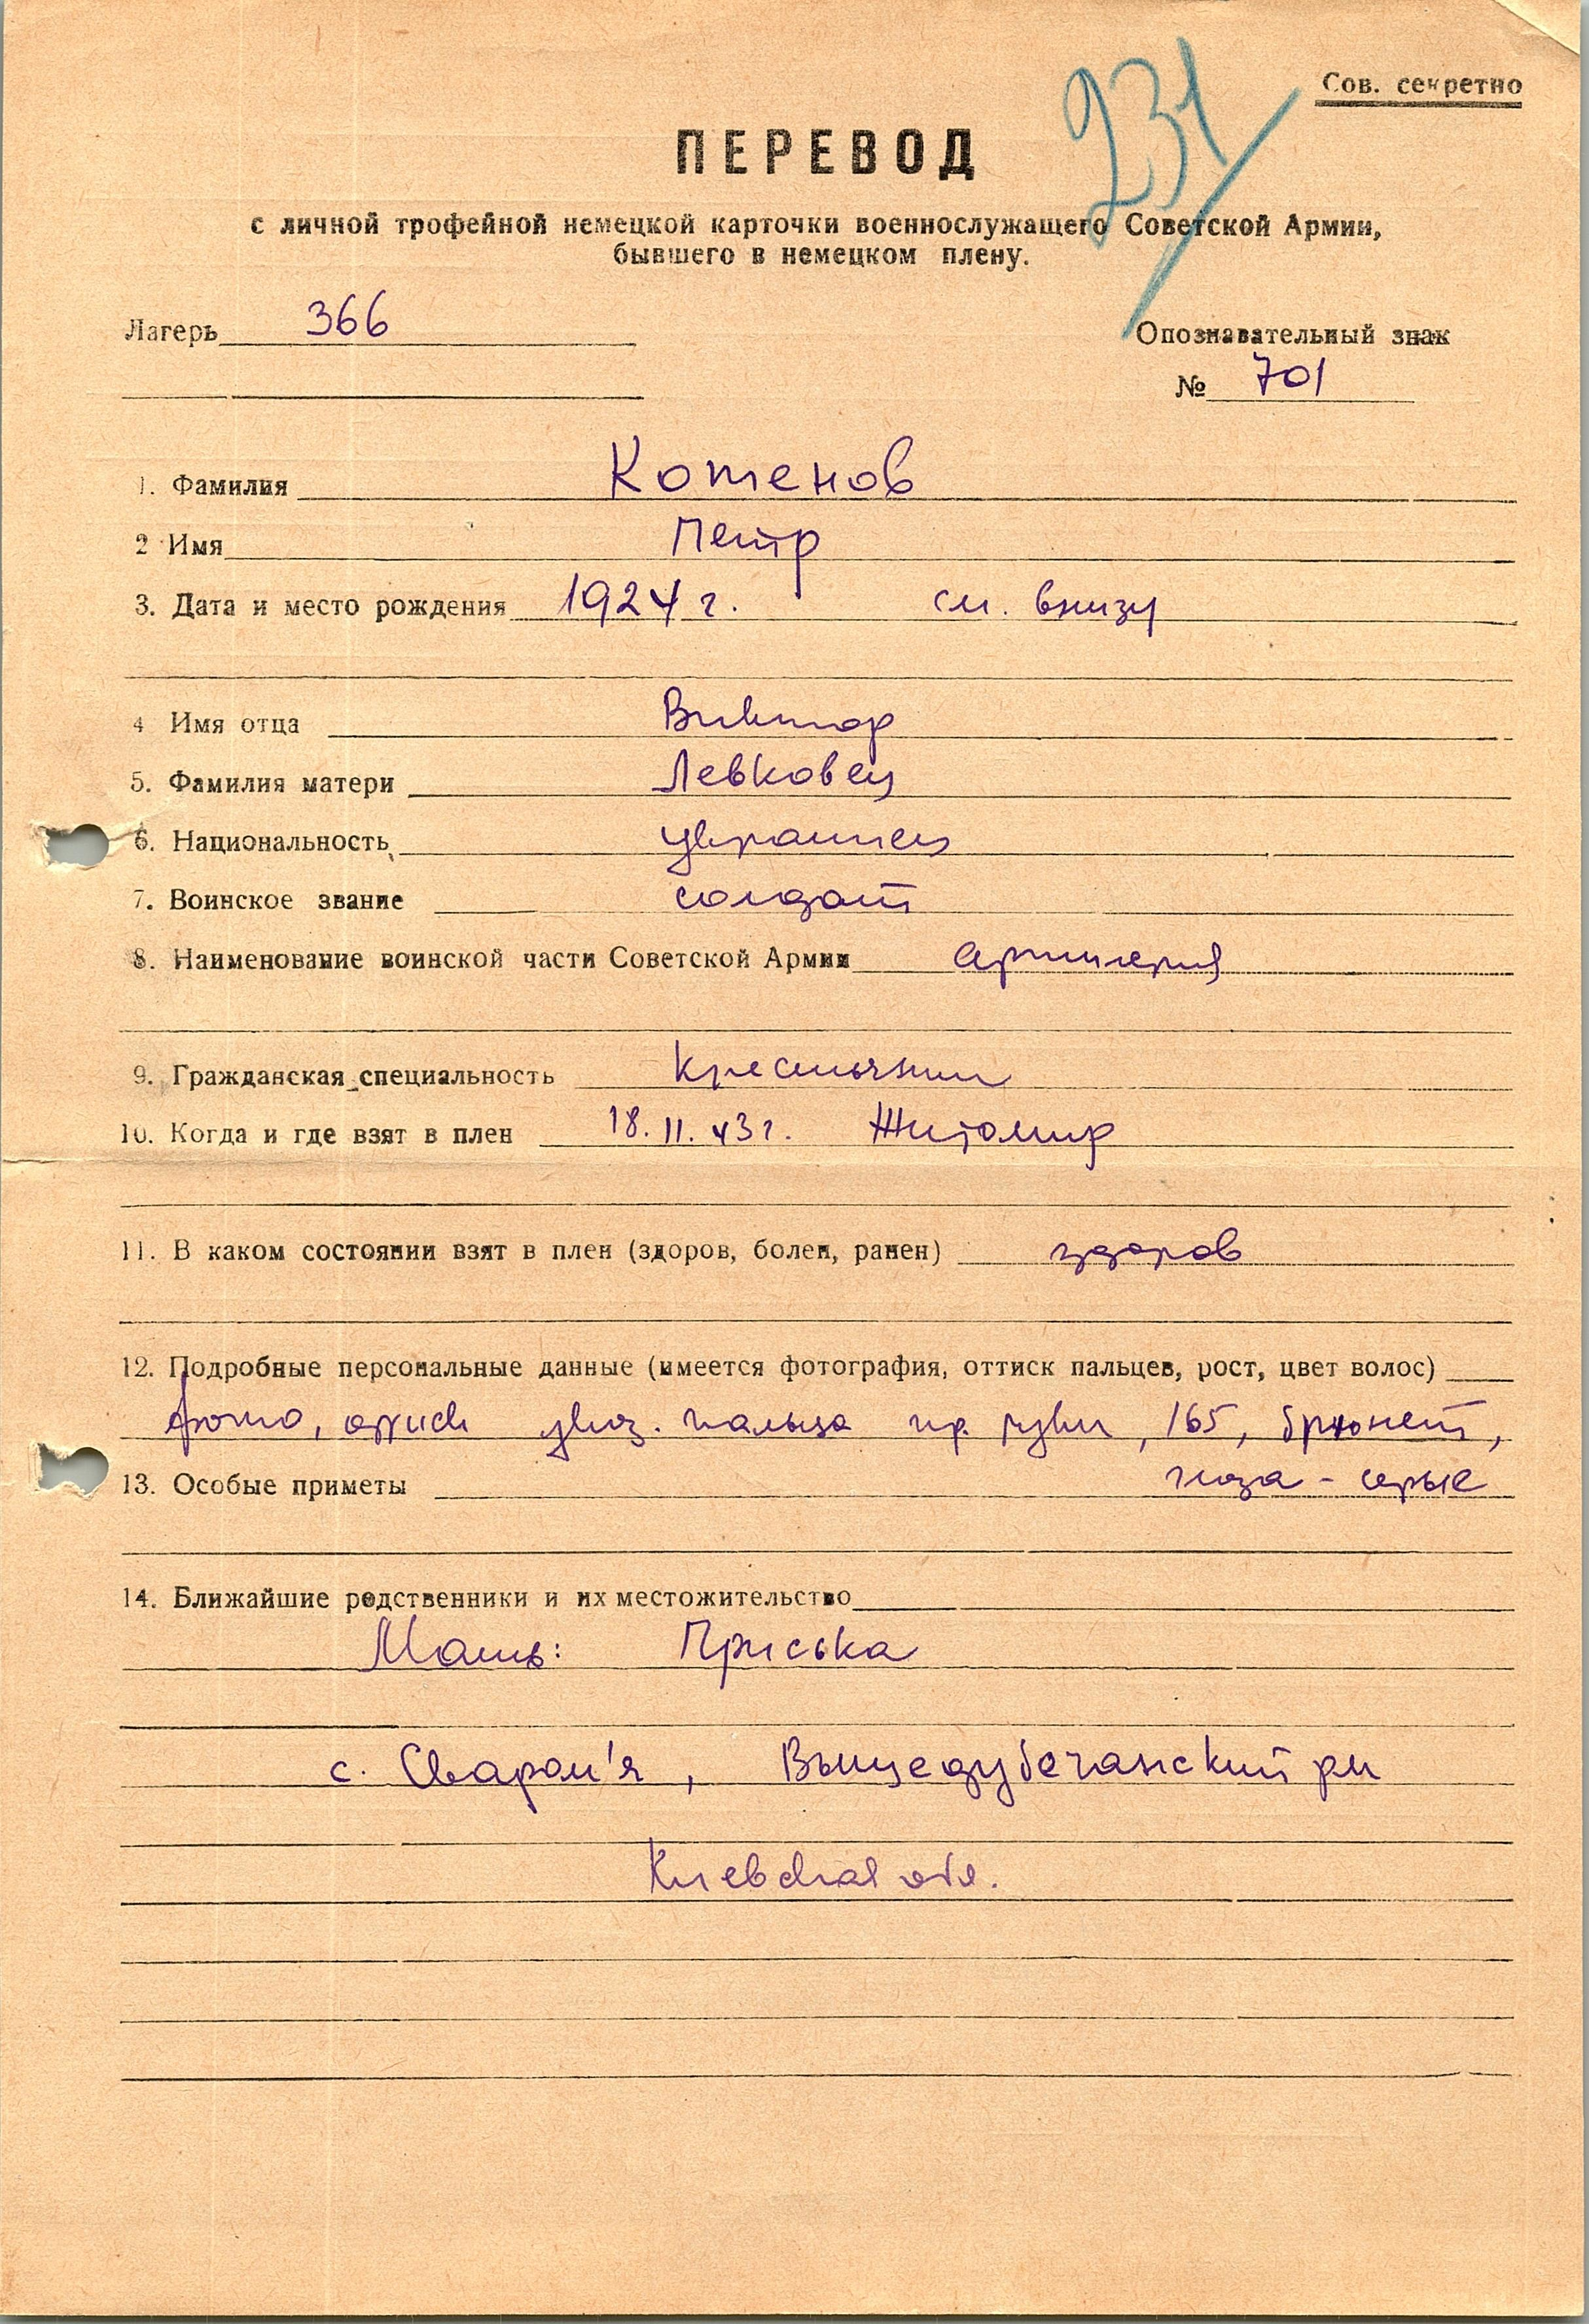 231
Сов. секретно
ПЕРЕВОД
с личной трофейной немецкой карточки военнослужащего Советской Армии,
бывшего в немецком плену.
Лагерь 366
Опознавательный знак
№ 701
1. Фамилия Котенов
2 Имя Петр
3. Дата и место рождения 1924 г. см. внизу
4 Имя отца Виктор
5. Фамилия матери Левковец
6. Национальность украинец
7. Воинское звание солдат
8. Наименование воинской части Советской Армии артиллерия
9. Гражданская специальность крестьянин
10. Когда и где взят в плен 18. 11. 43 г. Житомир
11. В каком состоянии взят в плен (здоров, болен, ранен) здоров
12. Подробные персональные данные (имеется фотография, оттиск пальцев, рост, цвет волос)
фото, оттиск указ. пальца пр. руки, 165, брюнет,
глаза - серые
13. Особые приметы
14. Ближайшие родственники и их местожительство
Мать: Приська
с. Сваром'я, Вышедубечанский рн
Киевская обл.